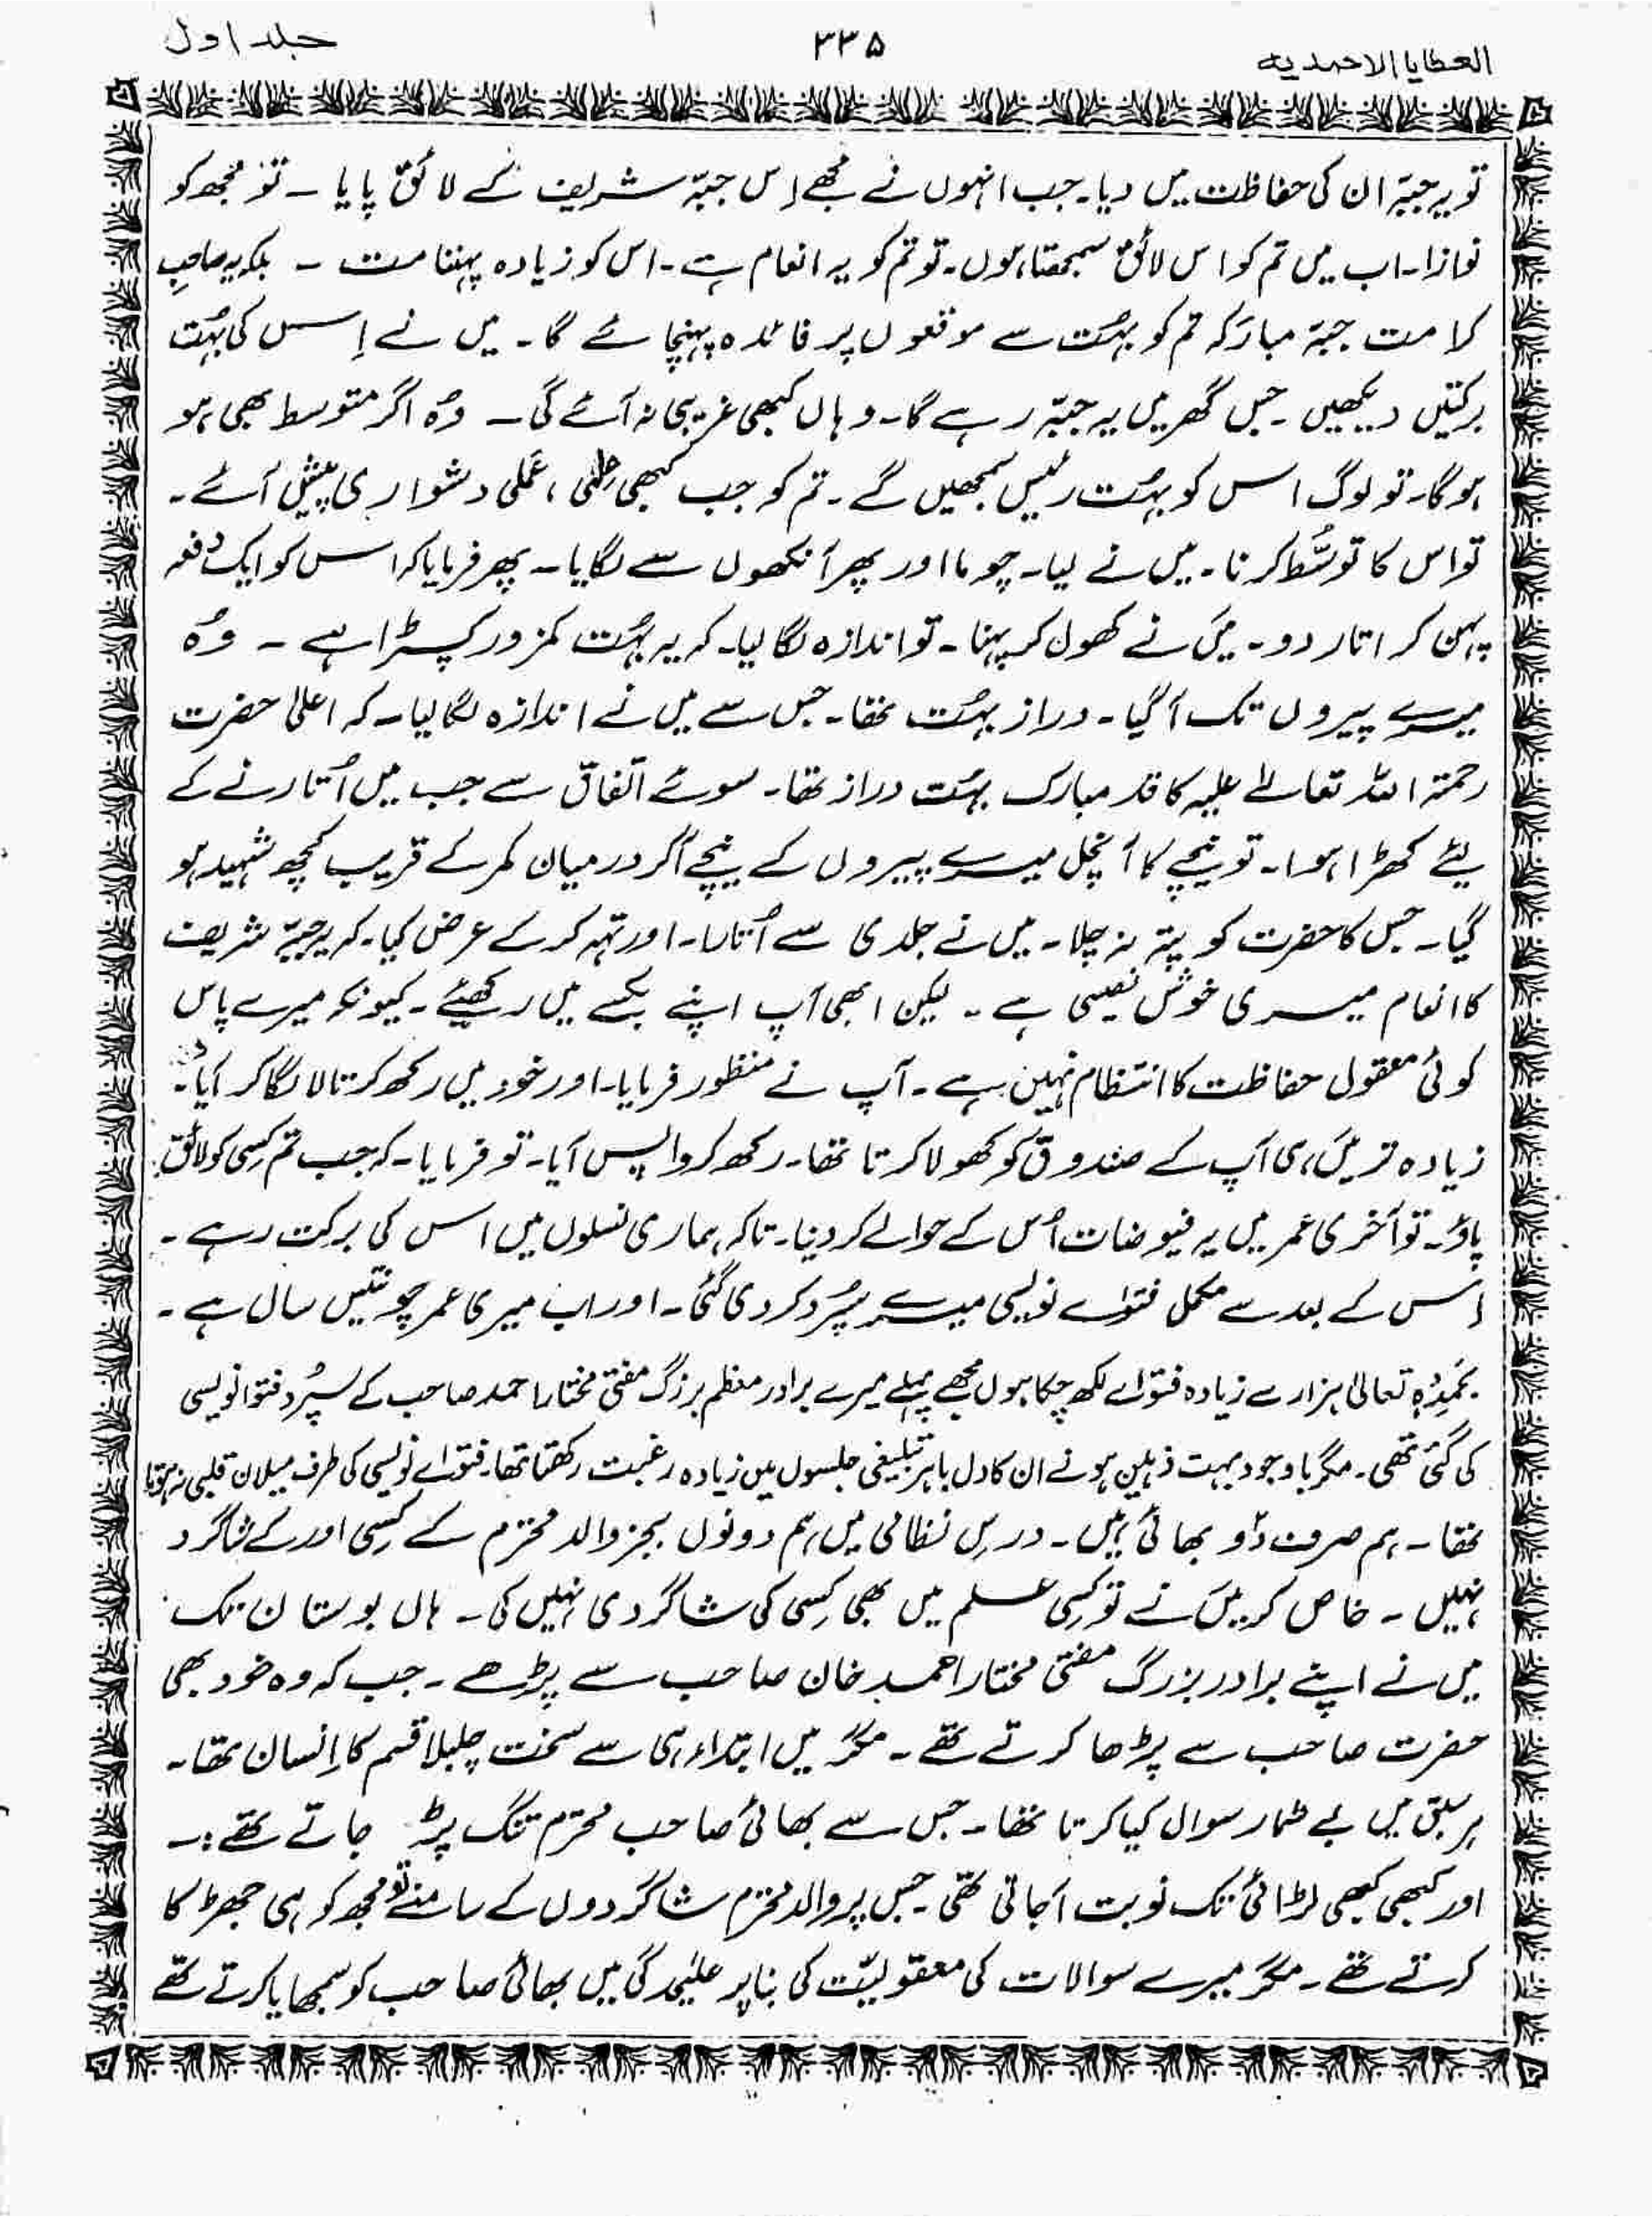 العطایا الاحمدیہ ۳۳۵ جلد اول
تو یہ جبّہ ان کی حفاظت میں دیا۔ جب انہوں نے مجھے اِس جبّہ شریف کے لائق پایا ۔ تو مجھ کو
نوازا۔ اب میں تم کو اس لائق سمجھتا ہوں۔ تو تم کو یہ انعام ہے۔ اس کو زیادہ پہننا مت ۔ بلکہ یہ صاحبِ
کرامت جبّہ مبارَکہ تم کو بہُت سے موقعوں پر فائدہ پہنچائے گا۔ میں نے اِسس کی بہُت
برکتیں دیکھیں ۔ جس گھر میں یہ جبّہ رہے گا۔ وہاں کبھی غریبی نہ آئے گی ۔ وُہ اگر متوسط بھی ہو
ہوگا۔ تو لوگ اس کو بہُت رئیس سمجھیں گے ۔ تم کو جب کبھی عِلمی ، عَملی دشواری پیش آئے ۔
تو اس کا توسُّط کرنا۔ میں نے لیا۔ چوما اور پھر آنکھوں سے لگایا ۔ پھر فرمایا کہ اسس کو ایک دفعہ
پہن کر اتار دو۔ میَں نے کھول کر پہنا ۔ تو اندازہ لگا لیا۔ کہ یہ بہُت کمزور کپڑا ہے ۔ وُہ
میرے پیروں تک آگیا ۔ دراز بہُت تھا۔ جس سے میں نے اندازہ لگا لیا ۔ کہ اعلیٰ حضرت
رحمۃ اللہ تعالےٰ علیہ کا قد مبارک بہُت دراز تھا۔ سوئے اتّفاق سے جب میں اُتارنے کے
لئے کھڑا ہوا۔ تو نیچے کا آنچل میرے پیروں کے نیچے آکر درمیان کمر کے قریب کچھ شہید ہو
گیا۔ جس کا حضرت کو پتہ نہ چلا۔ میں نے جلدی سے اُتارا۔ اور تہہ کر کے عرض کیا۔ کہ یہ جبّہ شریف
کا انعام میری خوش نصیبی ہے ۔ لیکن ابھی آپ اپنے بکسے میں رکھیئے ۔ کیونکہ میرے پاس
کوئی معقول حفاظت کا انتظام نہیں ہے ۔ آپ نے منظور فرمایا۔ اور خود میں رکھ کر تالا لگا کر آیا ۔
زیادہ تر میَں ہی آپ کے صندوق کو کھولا کرتا تھا۔ رکھ کر واپس آیا۔ تو فرمایا۔ کہ جب تم کِسی کو لائق
پاؤ۔ تو آخری عمر میں یہ فیوضات اُس کے حوالے کر دینا۔ تاکہ ہماری نسلوں میں اسس کی برکت رہے ۔
اِسس کے بعد سے مکمل فتواے نویسی میرے سپُرد کر دی گئی ۔ اور اب میری عمر چونتیس سال ہے ۔
بحَمدِہٖ تعالیٰ ہزار سے زیادہ فتواے لکھ چکا ہوں مجھ سے پہلے میرے برادر معظم بزرگ مفتی مختار احمد صاحب کے سپُرد فتوا نویسی
کی گئی تھی ۔ مگر باوجود بہت ذہین ہونے ان کا دل باہر تبلیغی جلسوں میں زیادہ رغبت رکھتا تھا۔ فتواے نویسی کی طرف میلان قلبی نہ ہوتا
تھا ۔ ہم صرف دُو بھائی ہیں ۔ درسِ نظامی میں ہم دونوں بجز والد محترم کے کِسی اور کے شاگرد
نہیں ۔ خاص کر میَں نے تو کسِی عسلم میں بھی کِسی کی شاگردی نہیں کی ۔ ہاں بوستان تک
میں نے اپنے برادر بزرگ مفتی مختار احمد خان صاحب سے پڑھے ۔ جب کہ وہ خود بھی
حضرت صاحب سے پڑھا کرتے تھے ۔ مگر میں ابتداء ہی سے سخت چلبلا قسم کا اِنسان تھا۔
ہر سبق میں بے شمار سوال کیا کرتا تھا ۔ جس سے بھائی صاحب محترم تنگ پڑ جاتے تھے :۔
اور کبھی کبھی لڑائی تک نوبت آجاتی تھی ۔ جس پر والد محترم شاگردوں کے سامنے تو مجھ کو ہی جھڑکا
کرتے تھے ۔ مگر میرے سوالات کی معقولیّت کی بنا پر علیٰحدگی میں بھائی صاحب کو سمجھایا کرتے تھے